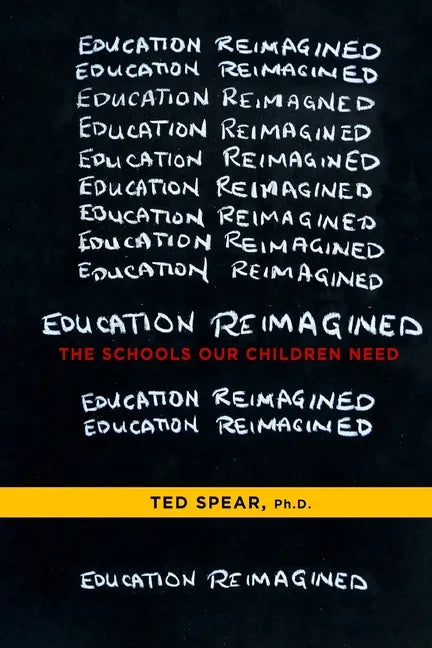 EDUCATION REIMAGINED
EDUCATION REIMAGINED
EDUCATION REIMAGNED
EDUCATION REIMAGINED
EDUCATION REIMAGINED
EDUCATION REIMAGINED
EDUCATION REIMAGINED
EDUCATION REIMAGINED
EDUCATION REIMAGINED
EDUCATION REIMAGINED
THE SCHOOLS OUR CHILDREN NEED
EDUCATION REIMAGINED
EDUCATION REIMAGINED
TED SPEAR, Ph.D.
EDUCATION REIMAGINED